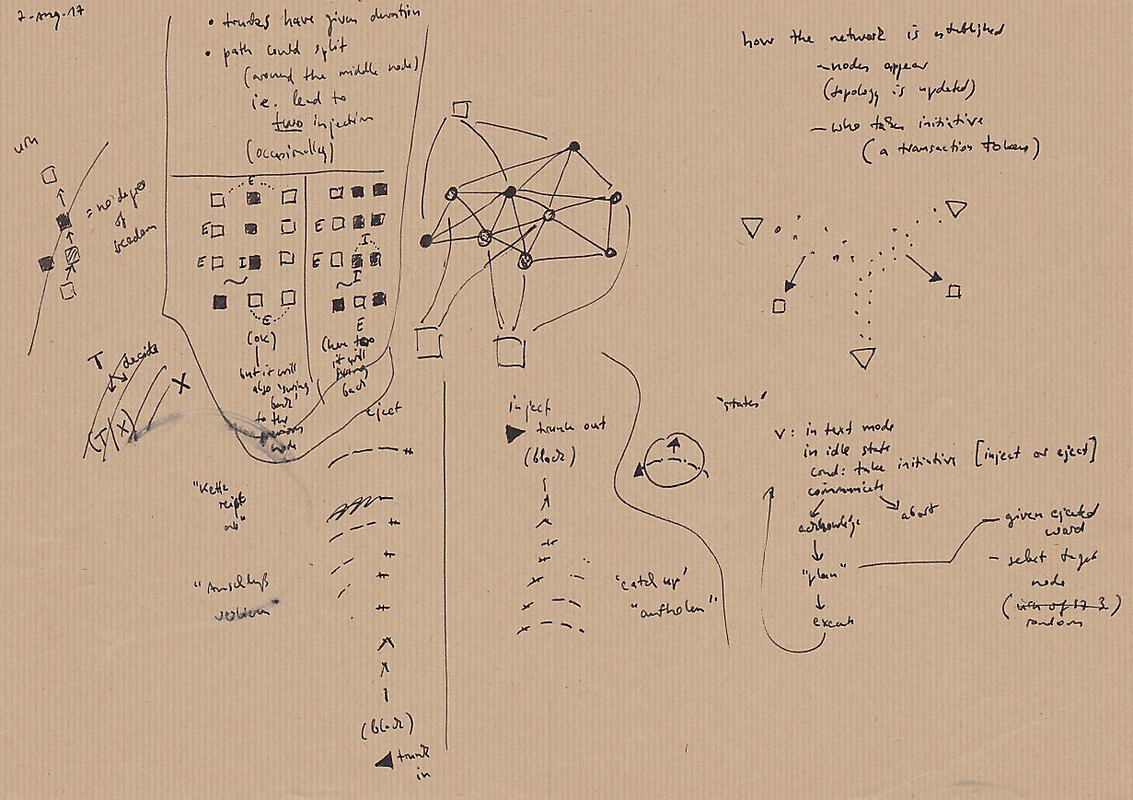 2-Aug-17
• trunks have given duration
• path could split
(around the middle node)
i.e. lead to
two injection
(occasionally)
how the network is established
— nodes appear
(topology is updated)
— who takes initiative
(a transaction token)
= no degree
of
freedom
E
E
E I
E
(ok)
but it will
also "swing
back"
to the
E
E I
I
E
(here too
it will
swing
back
T decide
X
(T/X)
"Kette
reißt
ab"
"Anschluß
verlieren"
eject
(block)
trunk
in
inject
trunk out
(block)
"catch up"
"aufholen"
"states"
V: in text mode
in idle state
cond: take initiative [inject or eject]
communicate
acknowledge
abort
"plan"
execute
— given ejected
word
— select target
node
random